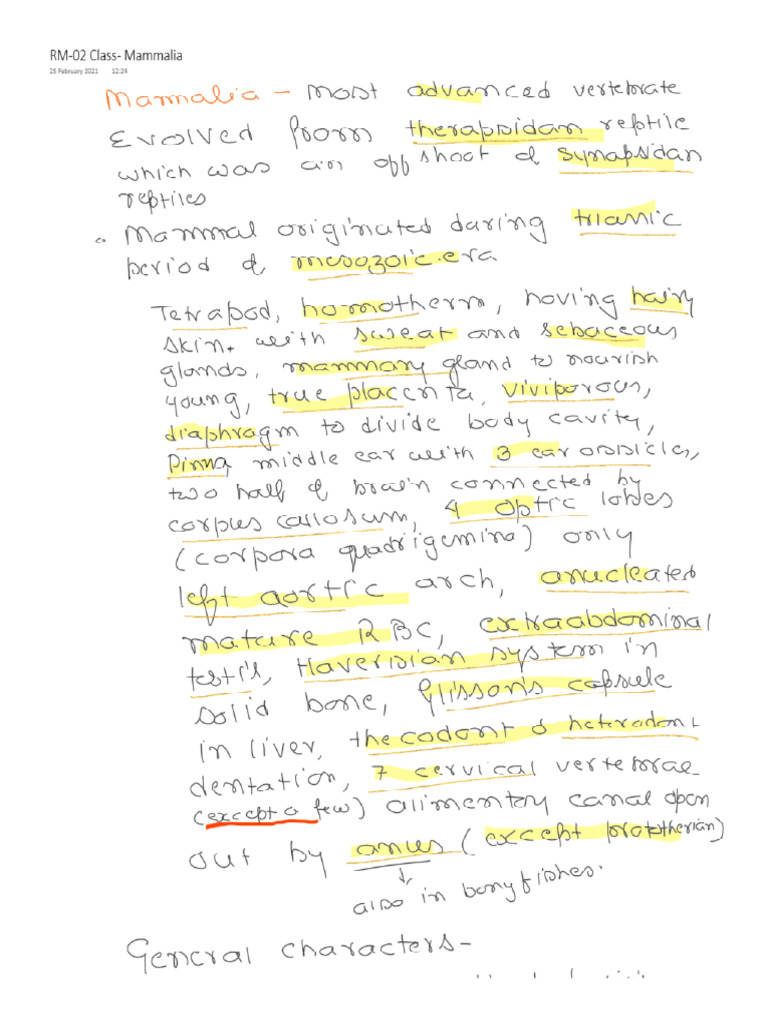 RM-02 Class- Mammalia
25 February 2021 12:24
Mammalia - most advanced vertebrate
Evolved from therapsidan reptile
which was an off shoot of synapsidan
reptiles
Mammal originated during triassic
period of mesozoic era
Tetrapod, homotherm, having hairy
skin. with sweat and sebaceous
glands, mammary gland to nourish
young, true placenta, viviporous,
diaphragm to divide body cavity,
Pinna, middle ear with 3 ear ossicles,
two half of brain connected by
corpus callosum, 4 optic lobes
(corpora quadrigemina) only
left aortic arch, anucleated
mature RBC, extraabdominal
testis, Haversian system in
solid bone, Glisson's capsule
in liver, thecodont & heterodont
dentation, 7 cervical vertebrae
(except a few) alimentry canal open
out by anus (except prototherian)
also in bony fishes.
General characters-